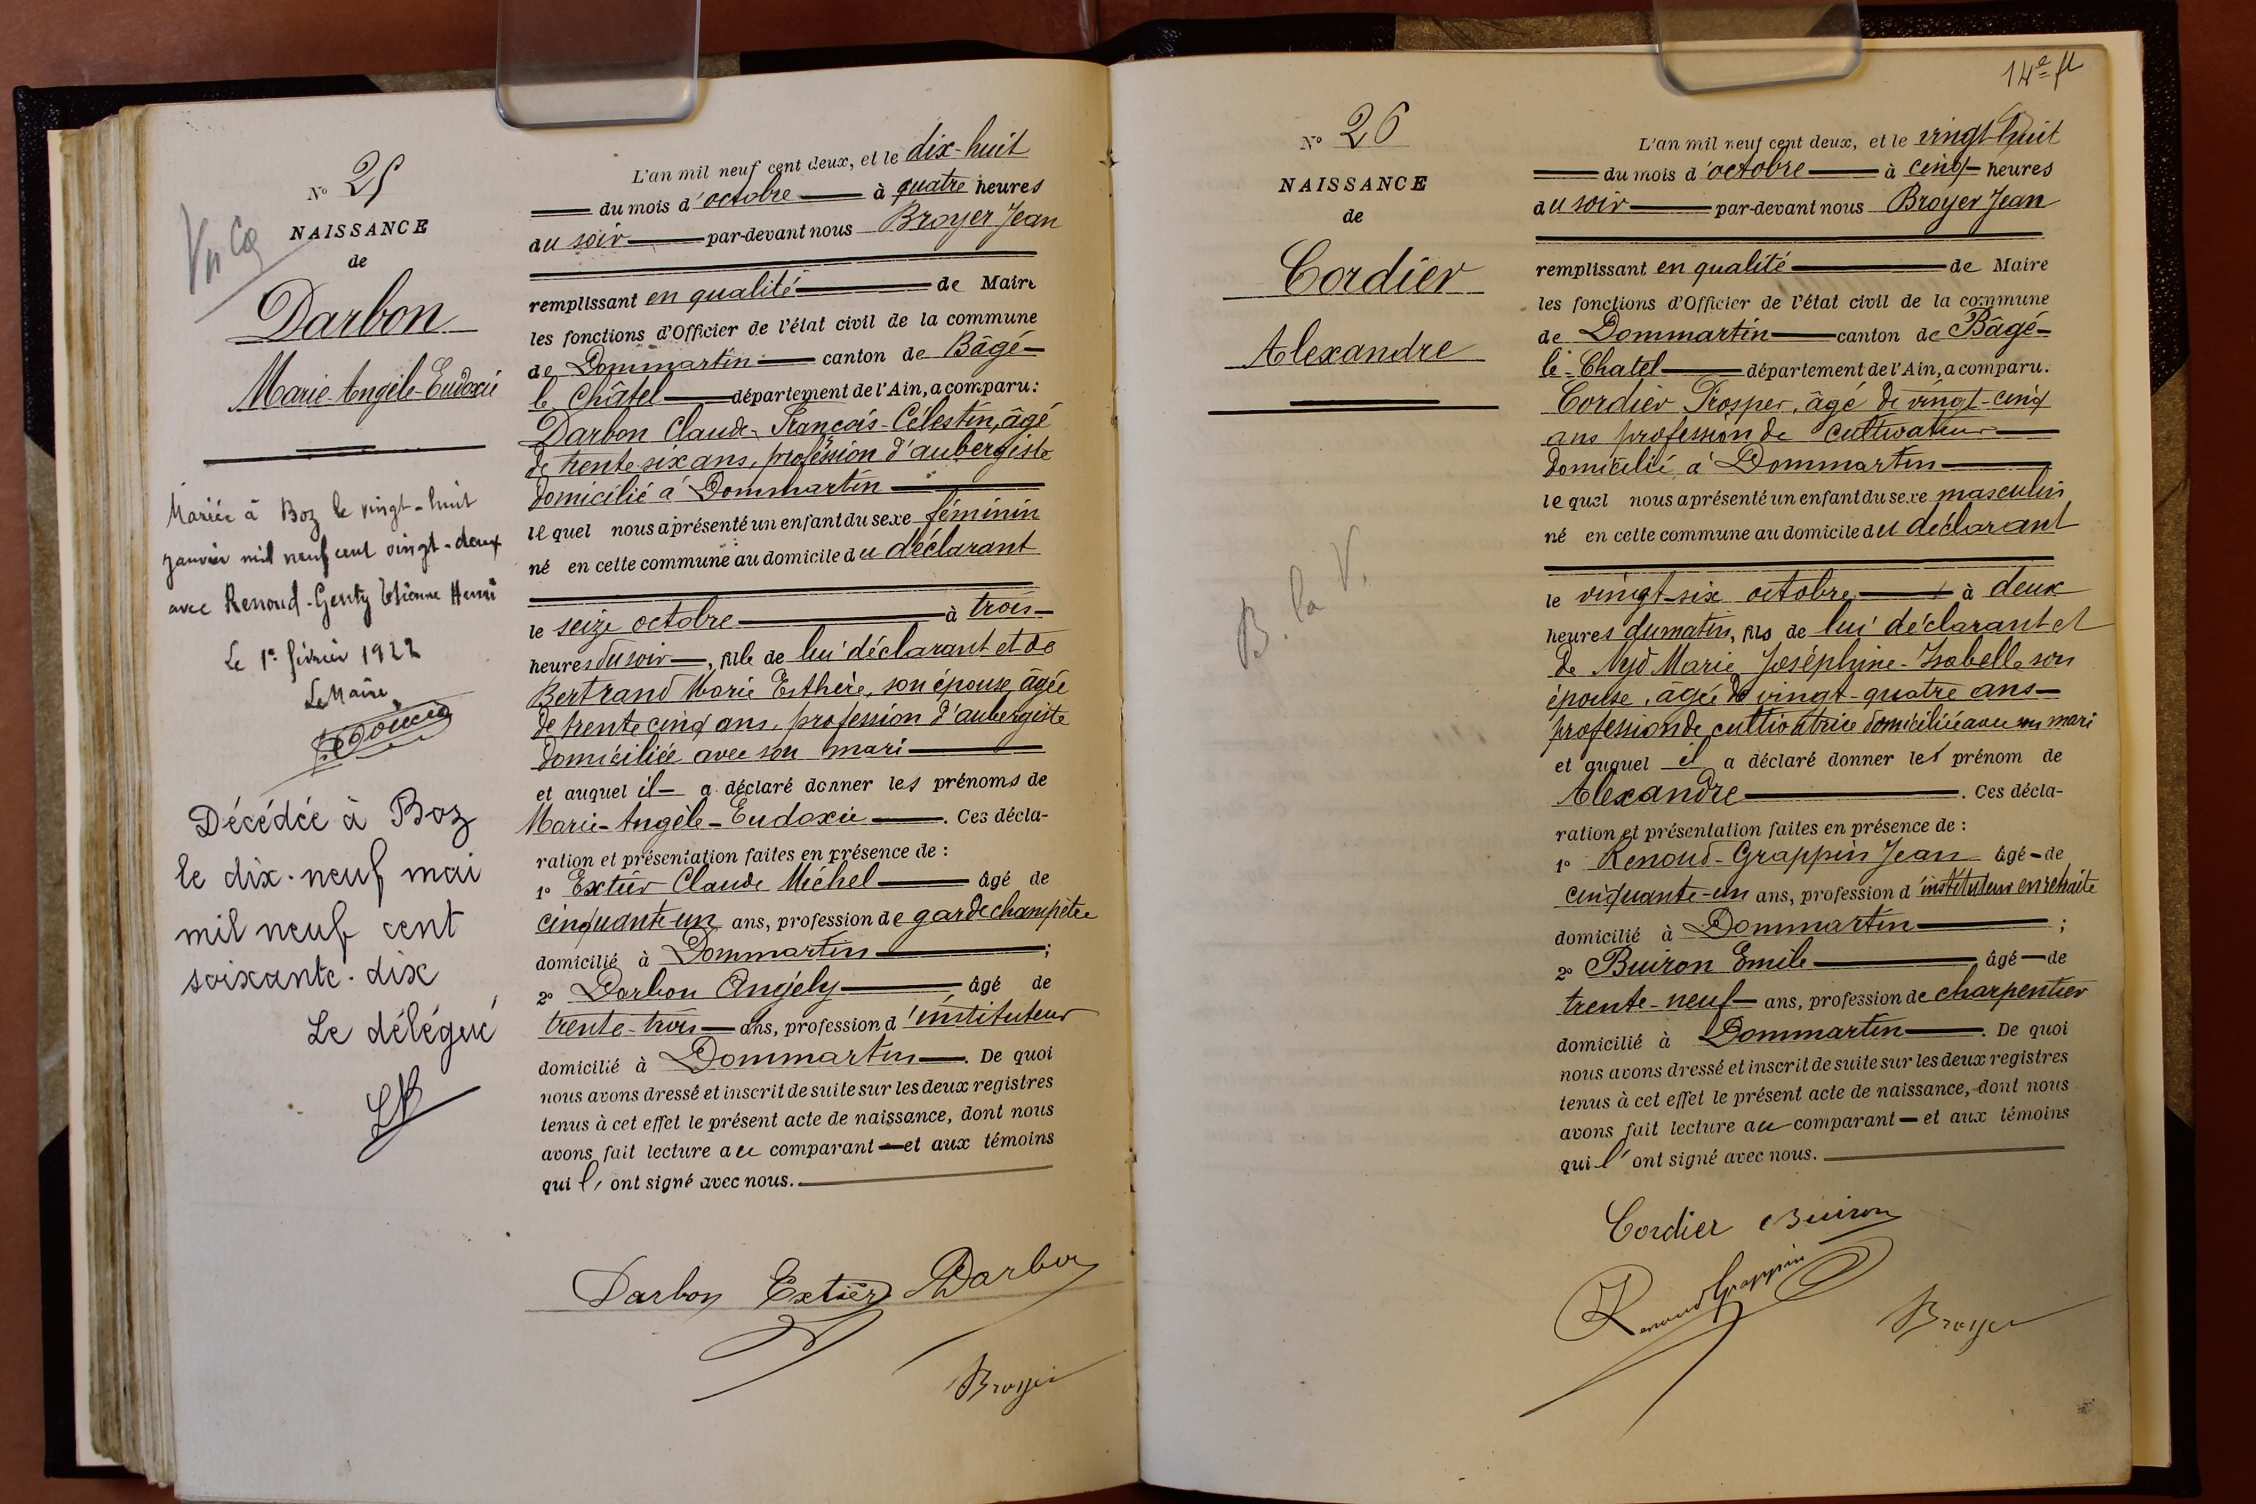 N° 25
NAISSANCE
de
Darbon
Marie-Angèle-Eudoxie
Mariée à Boz le vingt-huit
janvier mil neuf cent vingt-deux
avec Renoud-Genty Etienne Henri
Le 1er février 1922
Le Maire
Décédée à Boz
le dix-neuf mai
mil neuf cent
soixante-dix
Le délégué
L'an mil neuf cent deux, et le dix-huit
du mois d'octobre à quatre heures
du soir par-devant nous Broyer Jean
remplissant en qualité de Maire
les fonctions d'Officier de l'état civil de la commune
de Dommartin canton de Bâgé-
le Châtel département de l'Ain, a comparu:
Darbon Claude-François-Célestin, âgé
de trente six ans, profession d'aubergiste
domicilié à Dommartin
lequel nous a présenté un enfant du sexe féminin
né en cette commune au domicile du déclarant
le seize octobre à trois
heures du soir, fille de lui déclarant et de
Bertrand Marie Esthère, son épouse, âgée
de trente cinq ans, profession d'aubergiste
domiciliée avec son mari
et auquel il a déclaré donner les prénoms de
Marie-Angèle-Eudoxie. Ces décla-
ration et présentation faites en présence de :
1° Extier Claude Michel âgé de
cinquante-un ans, profession de garde champêtre
domicilié à Dommartin ;
2° Darbon Angély âgé de
trente-trois ans, profession d'instituteur
domicilié à Dommartin. De quoi
nous avons dressé et inscrit de suite sur les deux registres
tenus à cet effet le présent acte de naissance, dont nous
avons fait lecture au comparant et aux témoins
qui l'ont signé avec nous.
Darbon Extier Darbon
Broyer
14e ft
N° 26
NAISSANCE
de
Cordier
Alexandre
B. la V.
L'an mil neuf cent deux, et le vingt-huit
du mois d'octobre à cinq heures
du soir par-devant nous Broyer Jean
remplissant en qualité de Maire
les fonctions d'Officier de l'état civil de la commune
de Dommartin canton de Bâgé-
le-Chatel département de l'Ain, a comparu.
Cordier Prosper, âgé de vingt-cinq
ans profession de cultivateur
domicilié à Dommartin
lequel nous a présenté un enfant du sexe masculin
né en cette commune au domicile du déclarant
le vingt-six octobre à deux
heures du matin, fils de lui déclarant et
de Nyd Marie Joséphine-Isabelle son
épouse, âgée de vingt-quatre ans
profession de cultivatrice domiciliée avec son mari
et auquel il a déclaré donner les prénom de
Alexandre. Ces décla-
ration et présentation faites en présence de :
1° Renoud-Grappin Jean âgé de
cinquante-un ans, profession d'instituteur en retraite
domicilié à Dommartin ;
2° Buiron Emile âgé de
trente-neuf ans, profession de charpentier
domicilié à Dommartin. De quoi
nous avons dressé et inscrit de suite sur les deux registres
tenus à cet effet le présent acte de naissance, dont nous
avons fait lecture au comparant et aux témoins
qui l'ont signé avec nous.
Cordier Buiron
Renoud Grappin
Broyer